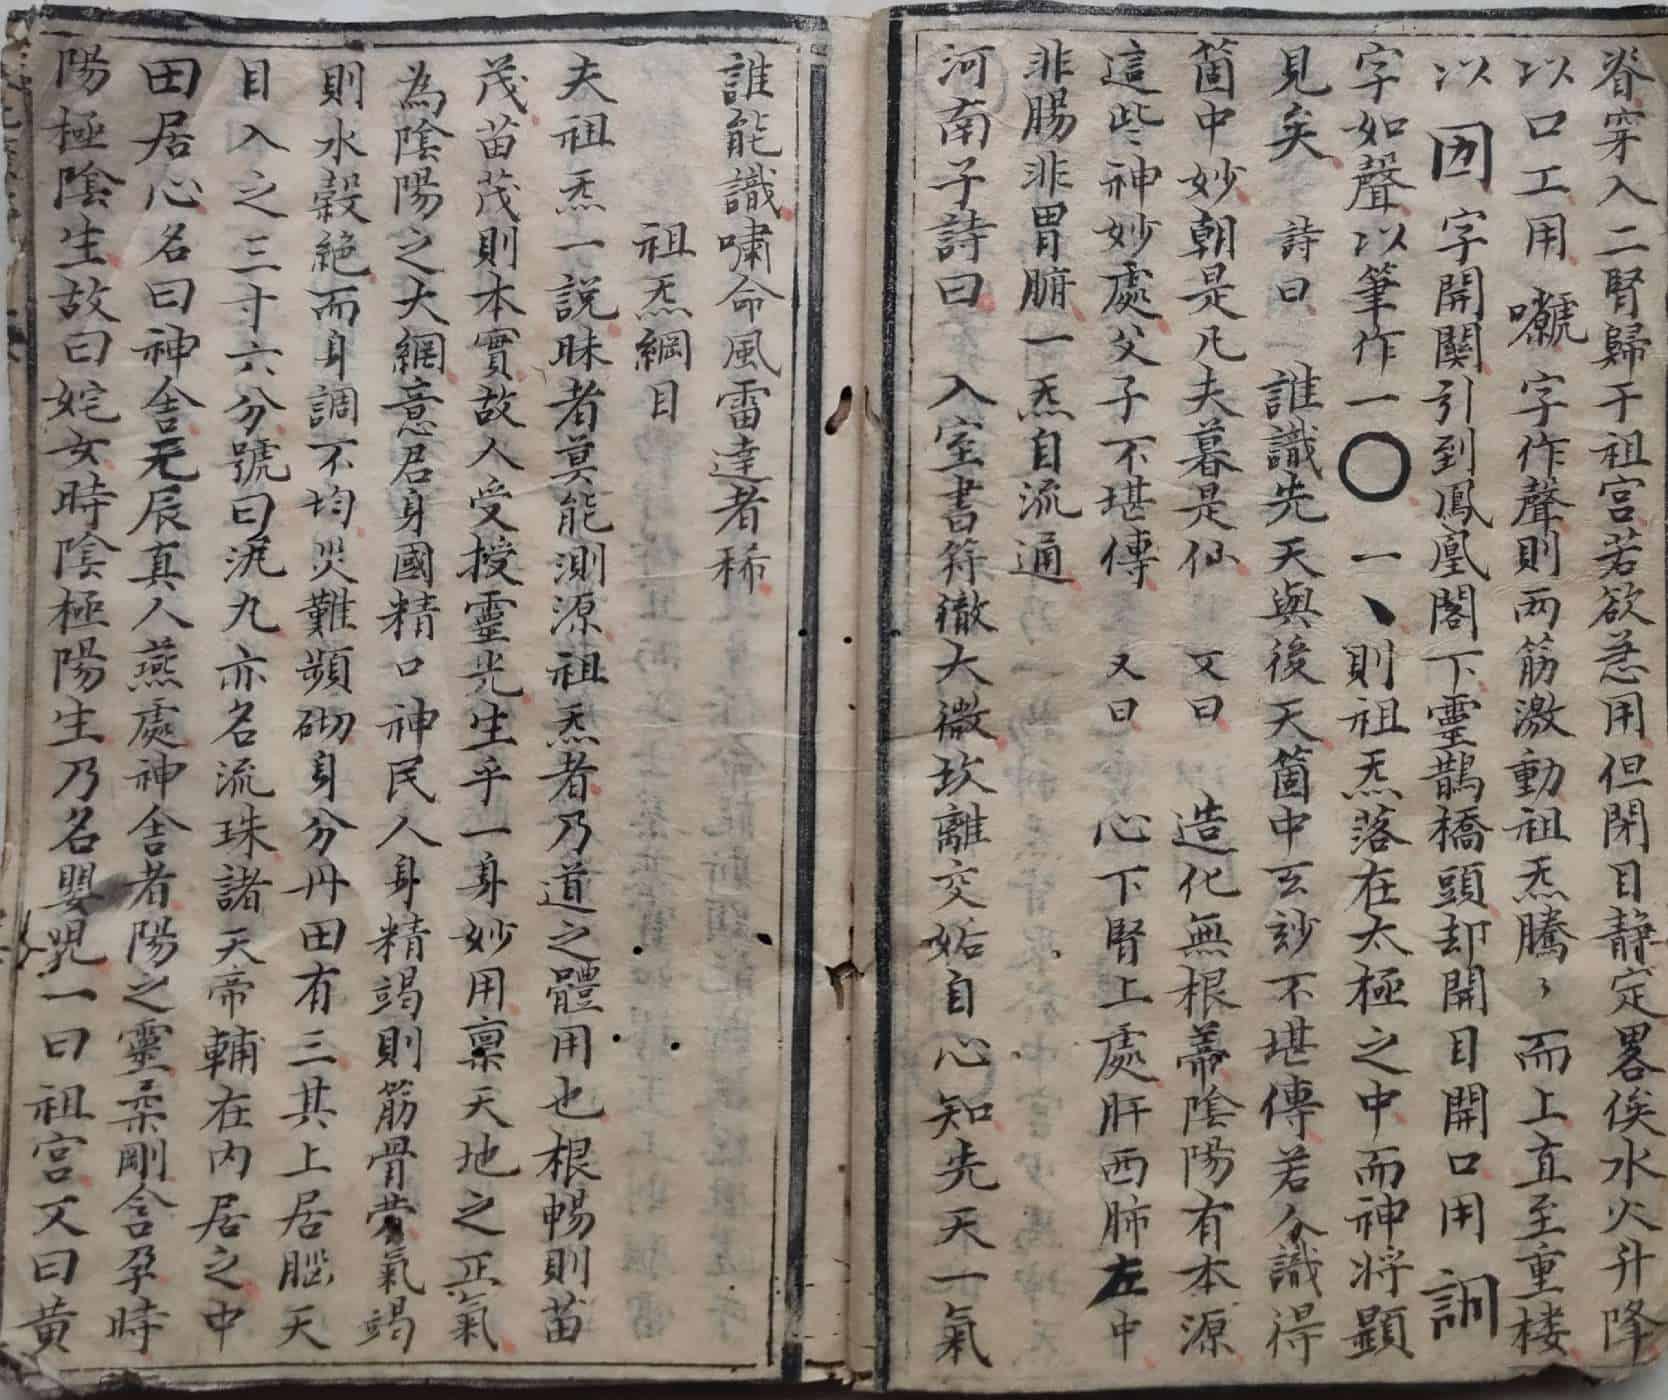 脊穿入二腎歸于祖宮若欲急用但閉目靜定畧俟水火升降
以口工用 字作聲則兩筋激動祖炁騰〻而上直至重樓
以囦字開關引到鳳凰閣下靈鵲橋頭却開目開口用 訓
字如聲以筆作一〇一丶則祖炁落在太極之中而神将顯
見矣 詩曰 誰識先天與後天箇中玄玅不堪傳若人識得
箇中妙朝是凡夫暮是仙 又曰 造化無根蒂陰陽有本源
這些神妙處父子不堪傳 又曰 心下腎上處肝西肺左中
非腸非胃腑一炁自流通
河南子詩曰 入室書符徹大微坎離交姤自心知先天一氣
誰能識嘯命風雷達者稀
祖炁綱目
夫祖炁一說昧者莫能測源祖炁者乃道之體用也根暢則苗
茂苗茂則本實故人受授靈光生乎一身妙用稟天地之正氣
為陰陽之大綱意君身國精口神民人身精竭則筋骨勞氣竭
則水穀絕而身調不均災難頻砌身分丹田有三其上居腦天
目入之三寸六分號曰泥九亦名流珠諸天帝輔在內居之中
田居心名曰神舍无辰真人燕處神舍者陽之靈柔剛含孕時
陽極陰生故曰姹女時陰極陽生乃名嬰児一曰祖宮又曰黄